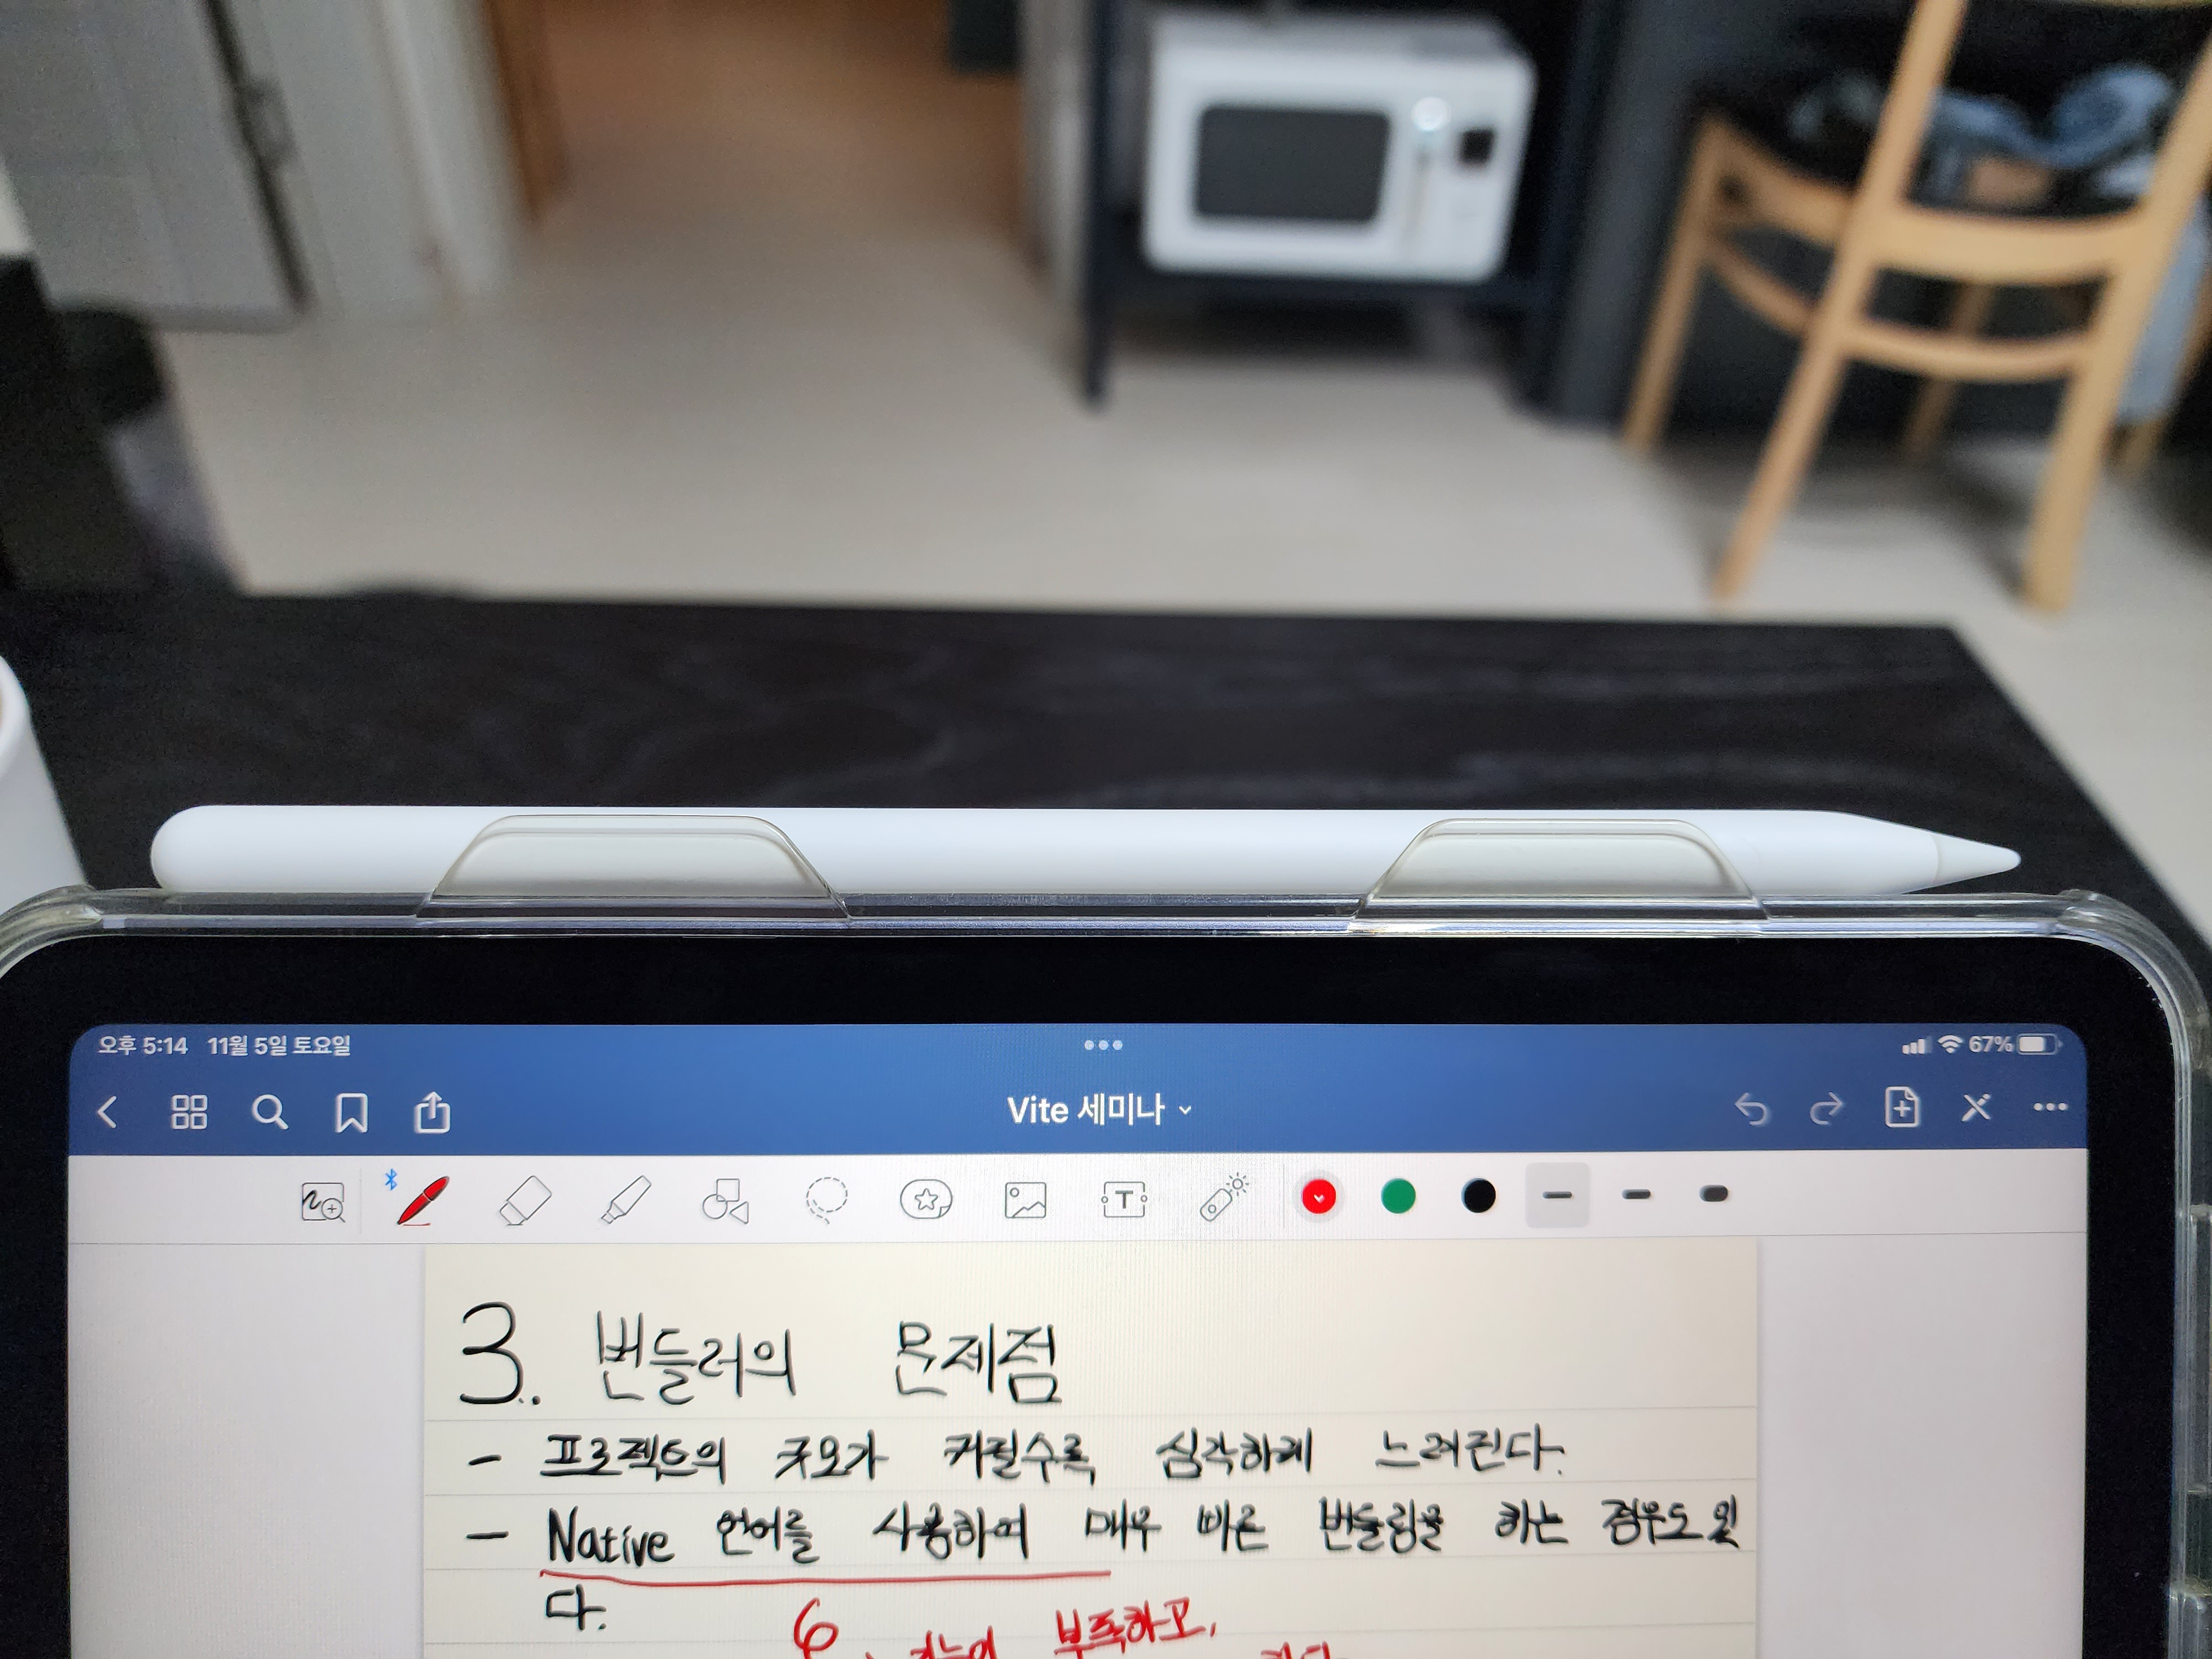 오후 5:14 11월 5일 토요일
67%
Vite 세미나
T
3. 번들러의 문제점
- 프로젝트의 규모가 커질수록 심각하게 느려진다.
- Native 언어를 사용하여 매우 빠른 번들링을 하는 경우도 있
다.
부족하고,